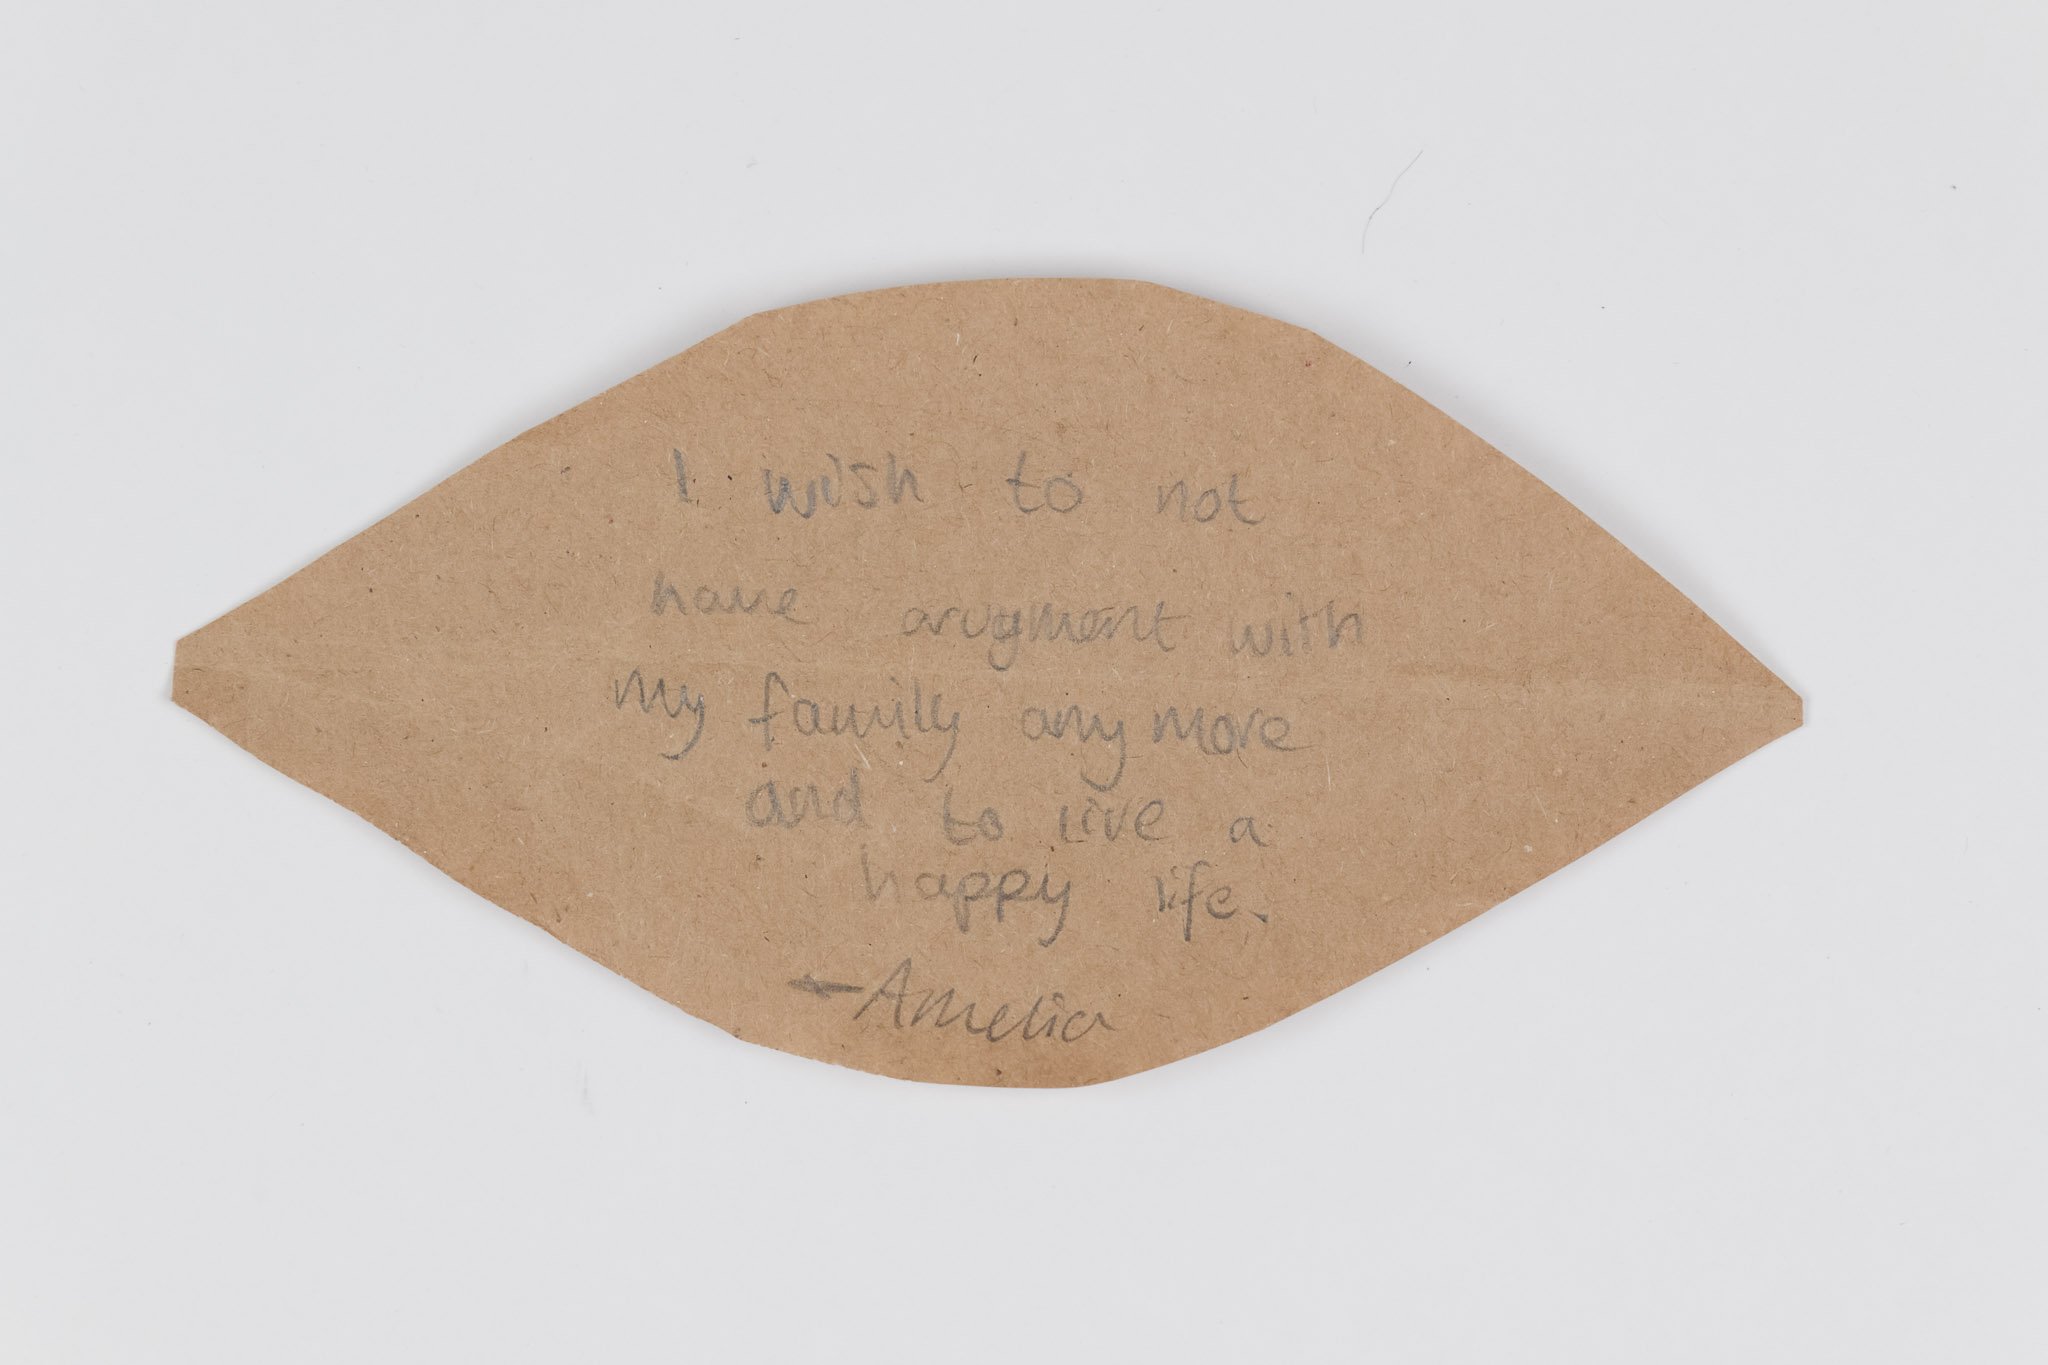 I wish to not
have arugment with
my family any more
and to live a
happy life.
- Amelia